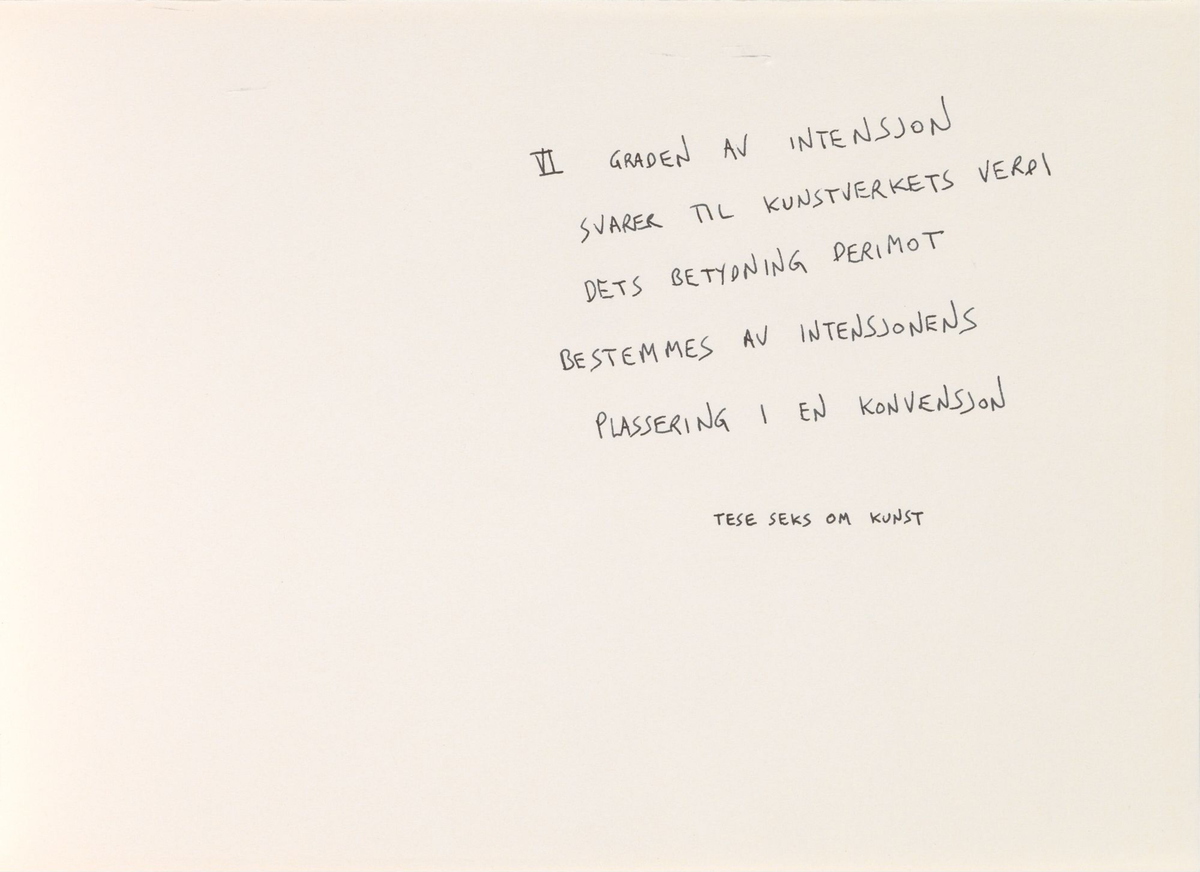 VI GRADEN AV INTENSJON
SVARER TIL KUNSTVERKETS VERDI
DETS BETYDNING DERIMOT
BESTEMMES AV INTENSJONENS
PLASSERING I EN KONVENSJON
TESE SEKS OM KUNST